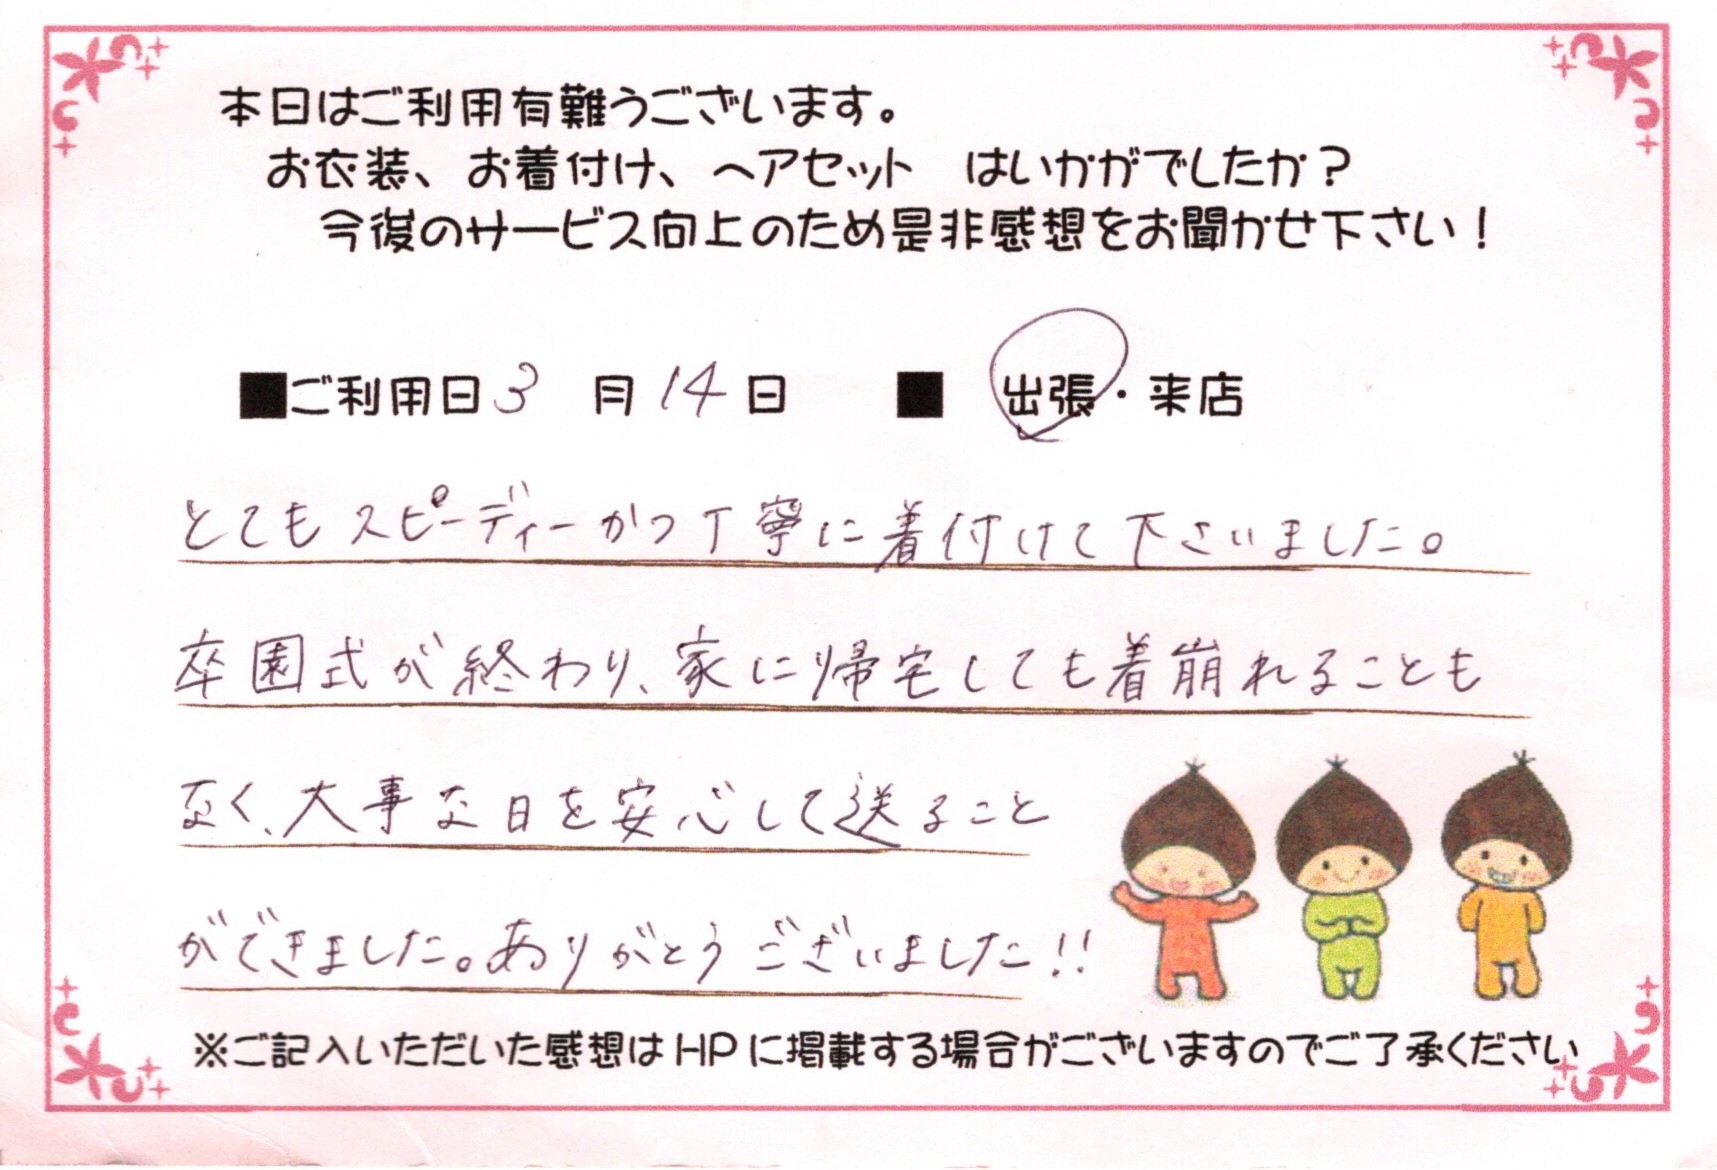 本日はご利用有難うございます。
お衣装、お着付け、ヘアセット　はいかがでしたか？
今後のサービス向上のため是非感想をお聞かせ下さい！
■ご利用日 3 月 14 日　■　出張・来店
とてもスピーディーかつ丁寧に着付けて下さいました。
卒園式が終わり、家に帰宅しても着崩れることも
なく、大事な日を安心して送ること
ができました。ありがとうございました!!
※ご記入いただいた感想はHPに掲載する場合がございますのでご了承ください